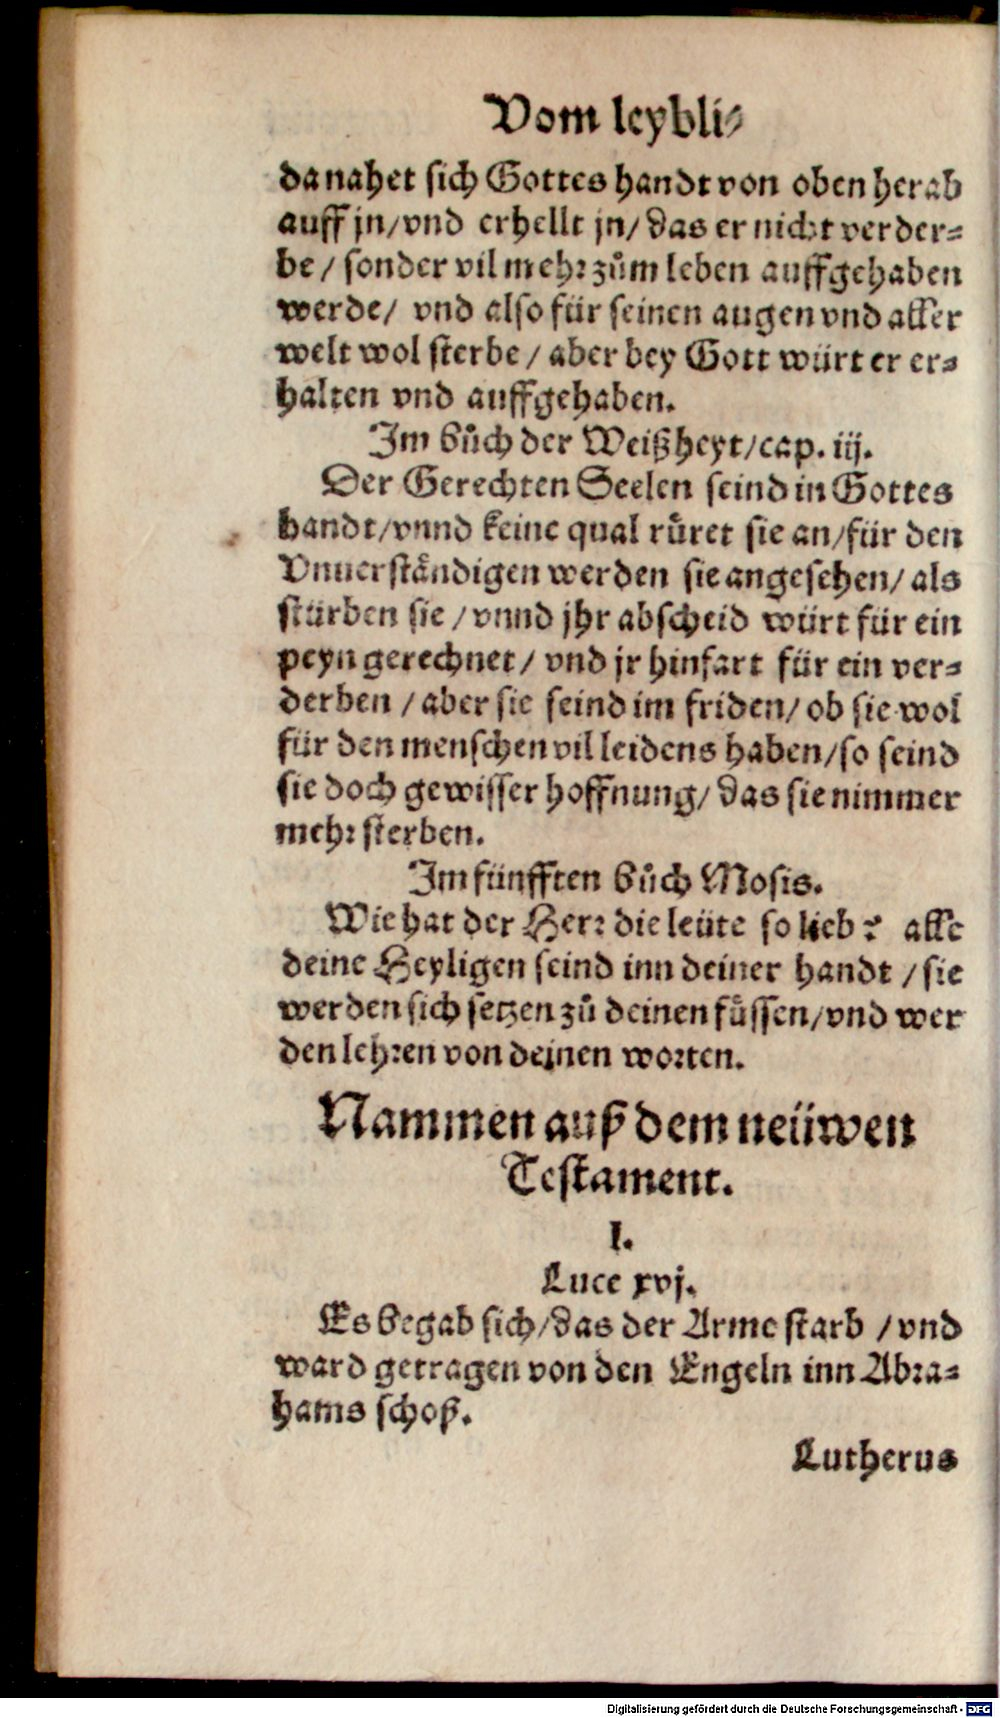 Vom leybli⸗
da nahet sich Gottes handt von oben herab
auff jn/vnd erhellt jn/ das er nicht verder⸗
be / sonder vil mehr zům leben auffgehaben
werde/ vnd also für seinen augen vnd aller
welt wol sterbe / aber bey Gott würt er er⸗
halten vnd auffgehaben.
Im bůch der Weißheyt/cap. iij.
Der Gerechten Seelen seind in Gottes
handt/vnnd keine qual růret sie an/für den
Vnuerständigen werden sie angesehen/ als
stürben sie / vnnd jhr abscheid würt für ein
peyn gerechnet / vnd jr hinfart für ein ver⸗
derben / aber sie seind im friden/ ob sie wol
für den menschen vil leidens haben/so seind
sie doch gewisser hoffnung/ das sie nimmer
mehr sterben.
Im fünfften bůch Mosis.
Wie hat der Herr die leüte so lieb? alle
deine Heyligen seind inn deiner handt / sie
werden sich setzen zů deinen fůssen/vnd wer
den lehren von deinen worten.
Nammen auß dem neüwen
Testament.
I.
Luce xvj.
Es begab sich/das der Arme starb / vnd
ward getragen von den Engeln inn Abra⸗
hams schoß.
Lutherus
Digitalisierung gefördert durch die Deutsche Forschungsgemeinschaft - DFG